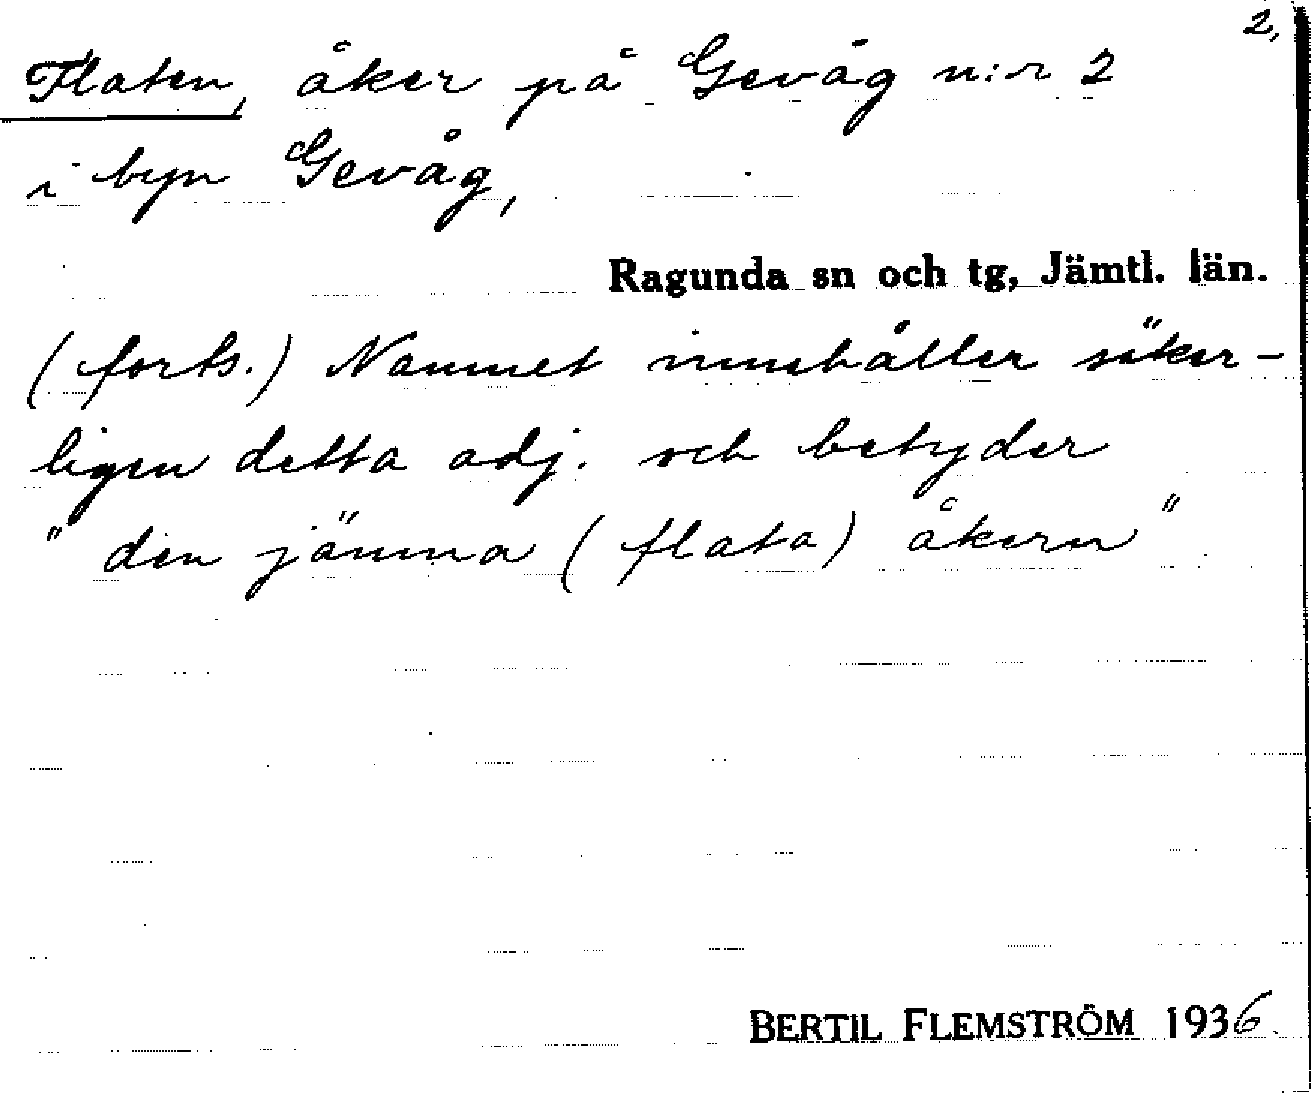 2,
Flaten, åker på Gevåg n:r 2
i byn Gevåg,
Ragunda sn och tg, Jämtl. län.
(forts.) Namnet innehåller säker-
ligen detta adj. och betyder
" den jämna (flata) åkern"
BERTIL FLEMSTRÖM 1936.